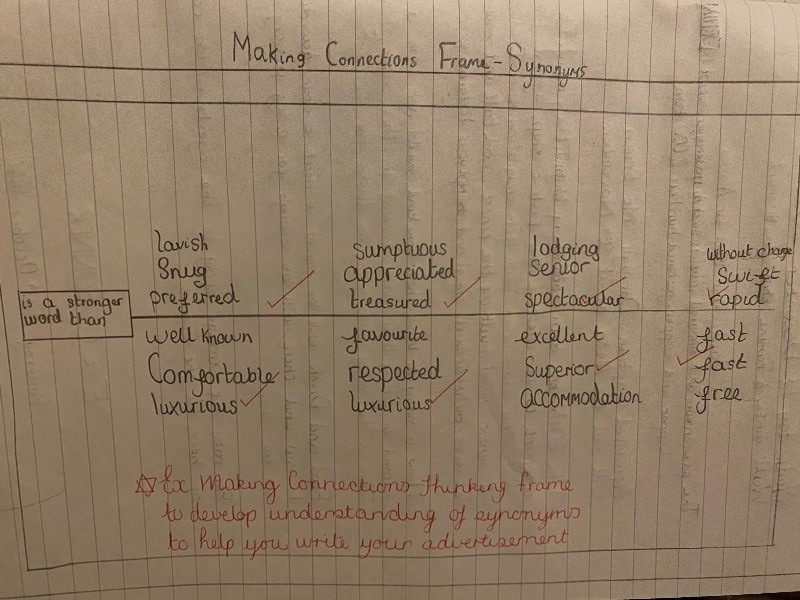 Making Connections Frame - Synonyms
lavish sumptuous lodging without charge
Snug appreciated Senior Swift
preferred treasured spectacular rapid
is a stronger
word than
well known favourite excellent fast
Comfortable respected Superior fast
luxurious luxurious accommodation free
Ex Making Connections thinking frame
to develop understanding of synonyms
to help you write your advertisement